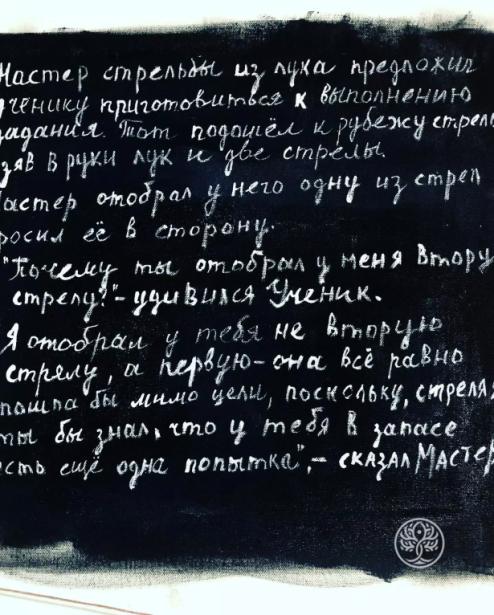 Мастер стрельбы из лука предложил
ученику приготовиться к выполнению
задания. Тот подошёл к рубежу стрель
взяв в руки лук и две стрелы.
Мастер отобрал у него одну из стрел
бросил её в сторону.
"Почему ты отобрал у меня втору
стрелу?" - удивился Ученик.
Я отобрал у тебя не вторую
стрелу, а первую - она всё равно
пошла бы мимо цели, поскольку, стреляя
ты бы знал, что у тебя в запасе
есть ещё одна попытка", - сказал Мастер